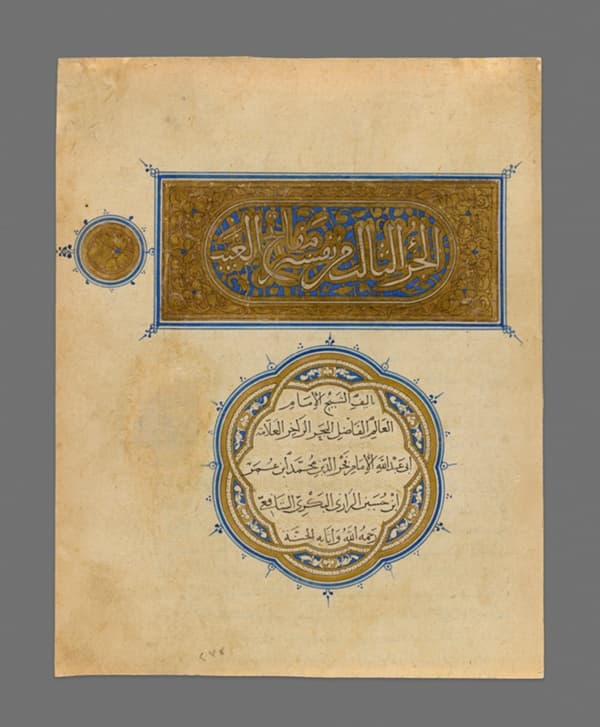 الجزء الثالث من تفسير مفاتح الغيب
تاليف الشيخ الامام
العالم الفاضل البحر الزاخر العلامة
ابي عبد الله الامام فخر الدين محمد ابن عمر
ابن حسين الرازي البكري الشافعي
رحمه الله واثابه الجنة